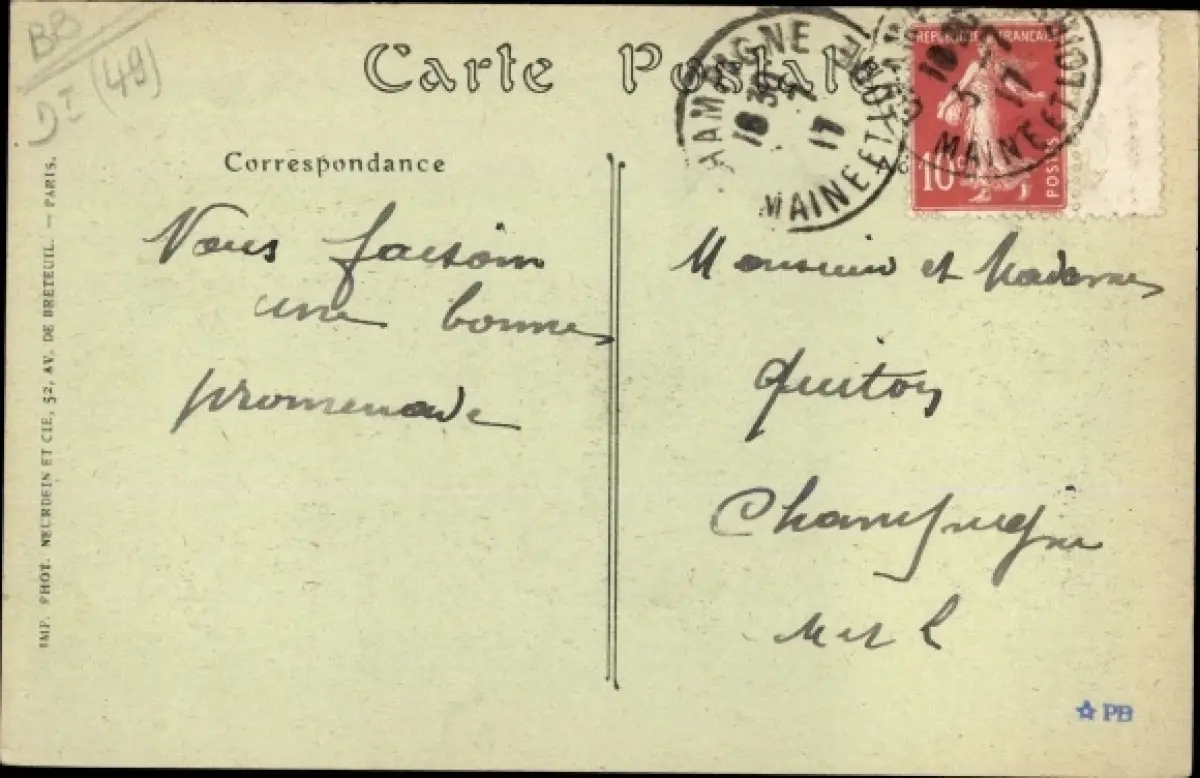 BB
(49)
Carte Postale
Correspondance
Nous faisons
une bonne
promenade
IMP. PHOT. NEURDEIN ET CIE, 52, AV. DE BRETEUIL. — PARIS.
HAMPAGNE
18 30
5 7
17
MAINE ET LOIRE
REPUBLIQUE FRANÇAISE
10c
POSTES
18 30
5 7
17
MAINE ET LOIRE
Monsieur et Madame
Quiton
Champigne
M et L
PB